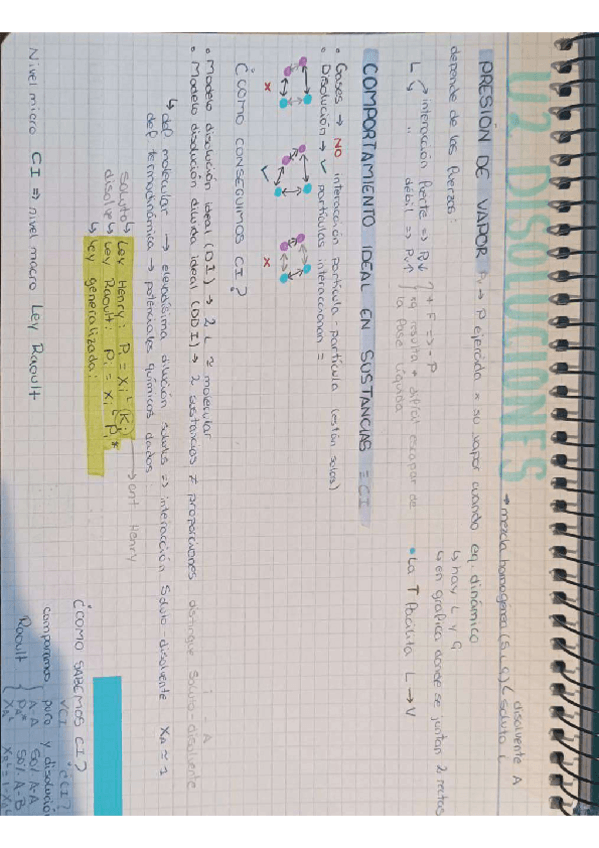 U2 DISOLUCIONES → mezcla homogénea (S, L, G) { soluto
disolvente A
PRESIÓN DE VAPOR Pv → P ejercida x su vapor cuando eq. dinámico
↳ hay L y G
↳ en gráfica donde se juntan 2 rectas
depende de las fuerzas:
L → interacción fuerte => Pv↓ } + F => - P
↘ " " débil => Pv↑ } eq resulta + difícil escapar de la fase líquida
• La T facilita L → V
COMPORTAMIENTO IDEAL EN SUSTANCIAS = CI
• Gases → NO interacción partícula-partícula (están solas)
• Disolución → ✓ partículas interaccionan =
x ✓ x
¿CÓMO CONSEGUIMOS CI?
• Modelo disolución ideal (DI) → 2 L = molecular
• Modelo disolución diluida ideal (DDI) → 2 sustancias ≠ proporciones distingue soluto-disolvente
↳ def molecular → elevadísima dilución soluto => interacción soluto-disolvente xA ≈ 1
def termodinámica → potenciales químicos dados
soluto ↳ Ley Henry: Pi = xi^L (Ki) → cnt Henry
disolve ↳ Ley Raoult: Pi = xi^L · Pi*
↳ Ley generalizada:
Nivel micro CI => nivel macro Ley Raoult
¿CÓMO SABEMOS CI?
✓CI ¿CI?
comparamos puro y disolución
Raoult { A-A 50% A-A 50% A-B
PA*
XA^L XB^L = 1 - XA^L